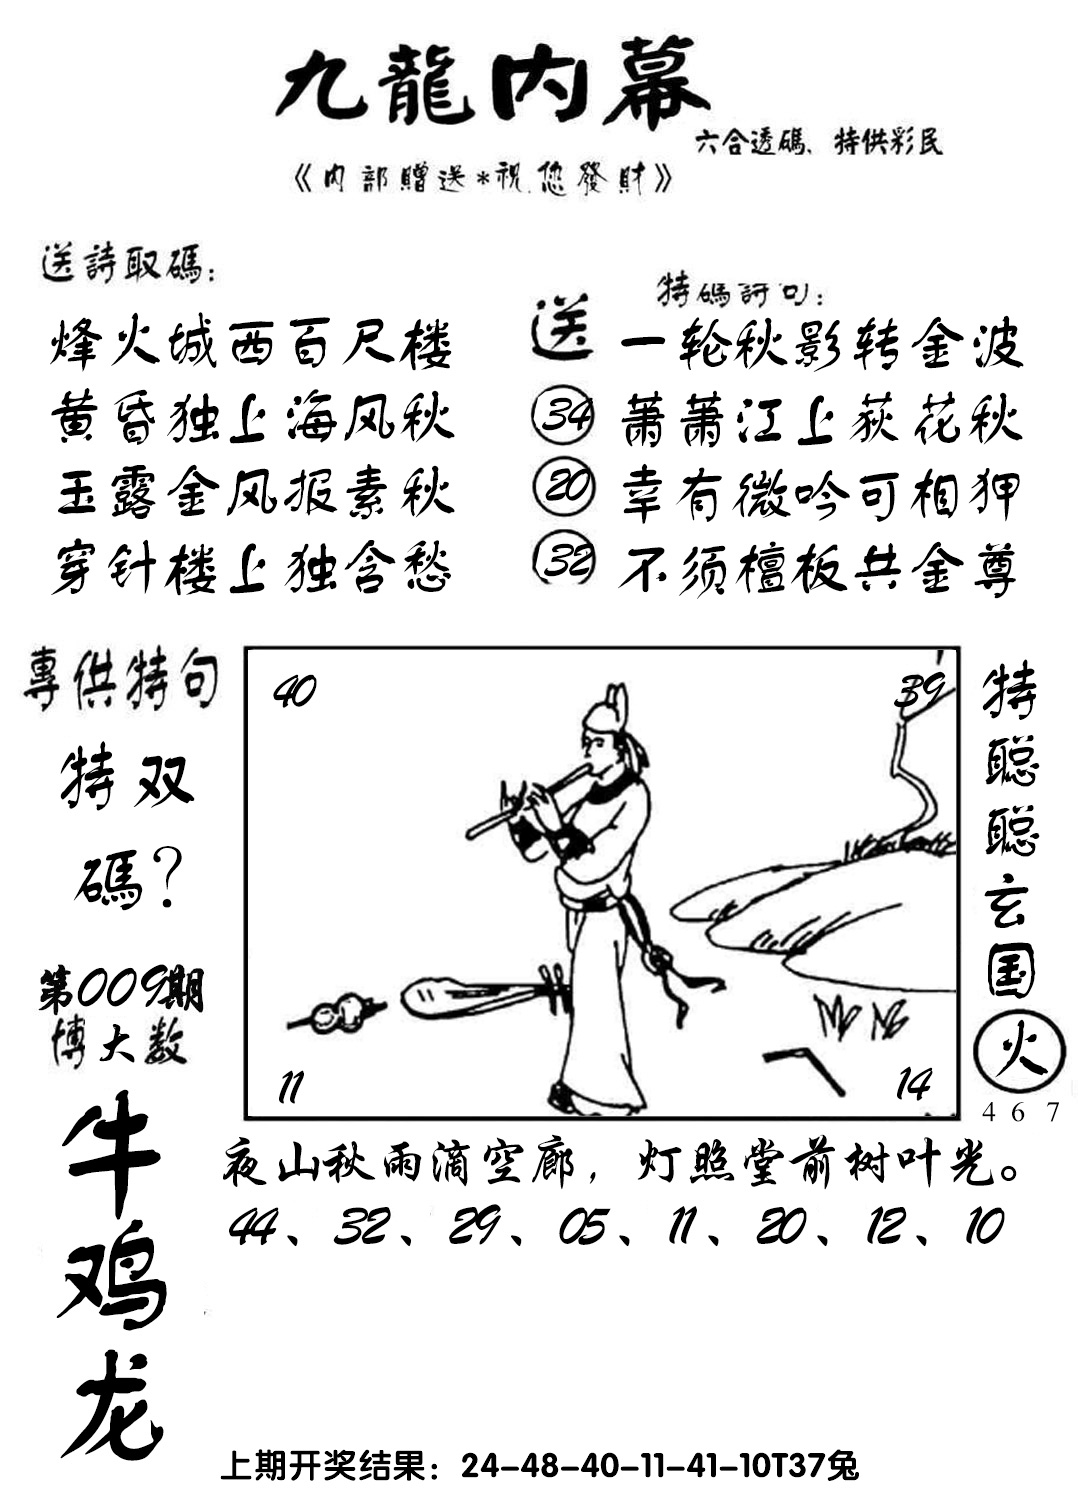 九龍内幕
六合透碼、特供彩民
《内部贈送*祝您發財》
送詩取碼：
烽火城西百尺楼
黄昏独上海风秋
玉露金风报素秋
穿针楼上独含愁
送
34
20
32
特碼詩句：
一轮秋影转金波
萧萧江上荻花秋
幸有微吟可相狎
不须檀板共金尊
專供特句
特双
碼？
第009期
博大数
牛
鸡
龙
40
39
11
14
特
聪
聪
玄
国
火
4 6 7
夜山秋雨滴空廊，灯照堂前树叶光。
44、32、29、05、11、20、12、10
上期开奖结果：24-48-40-11-41-10T37兔